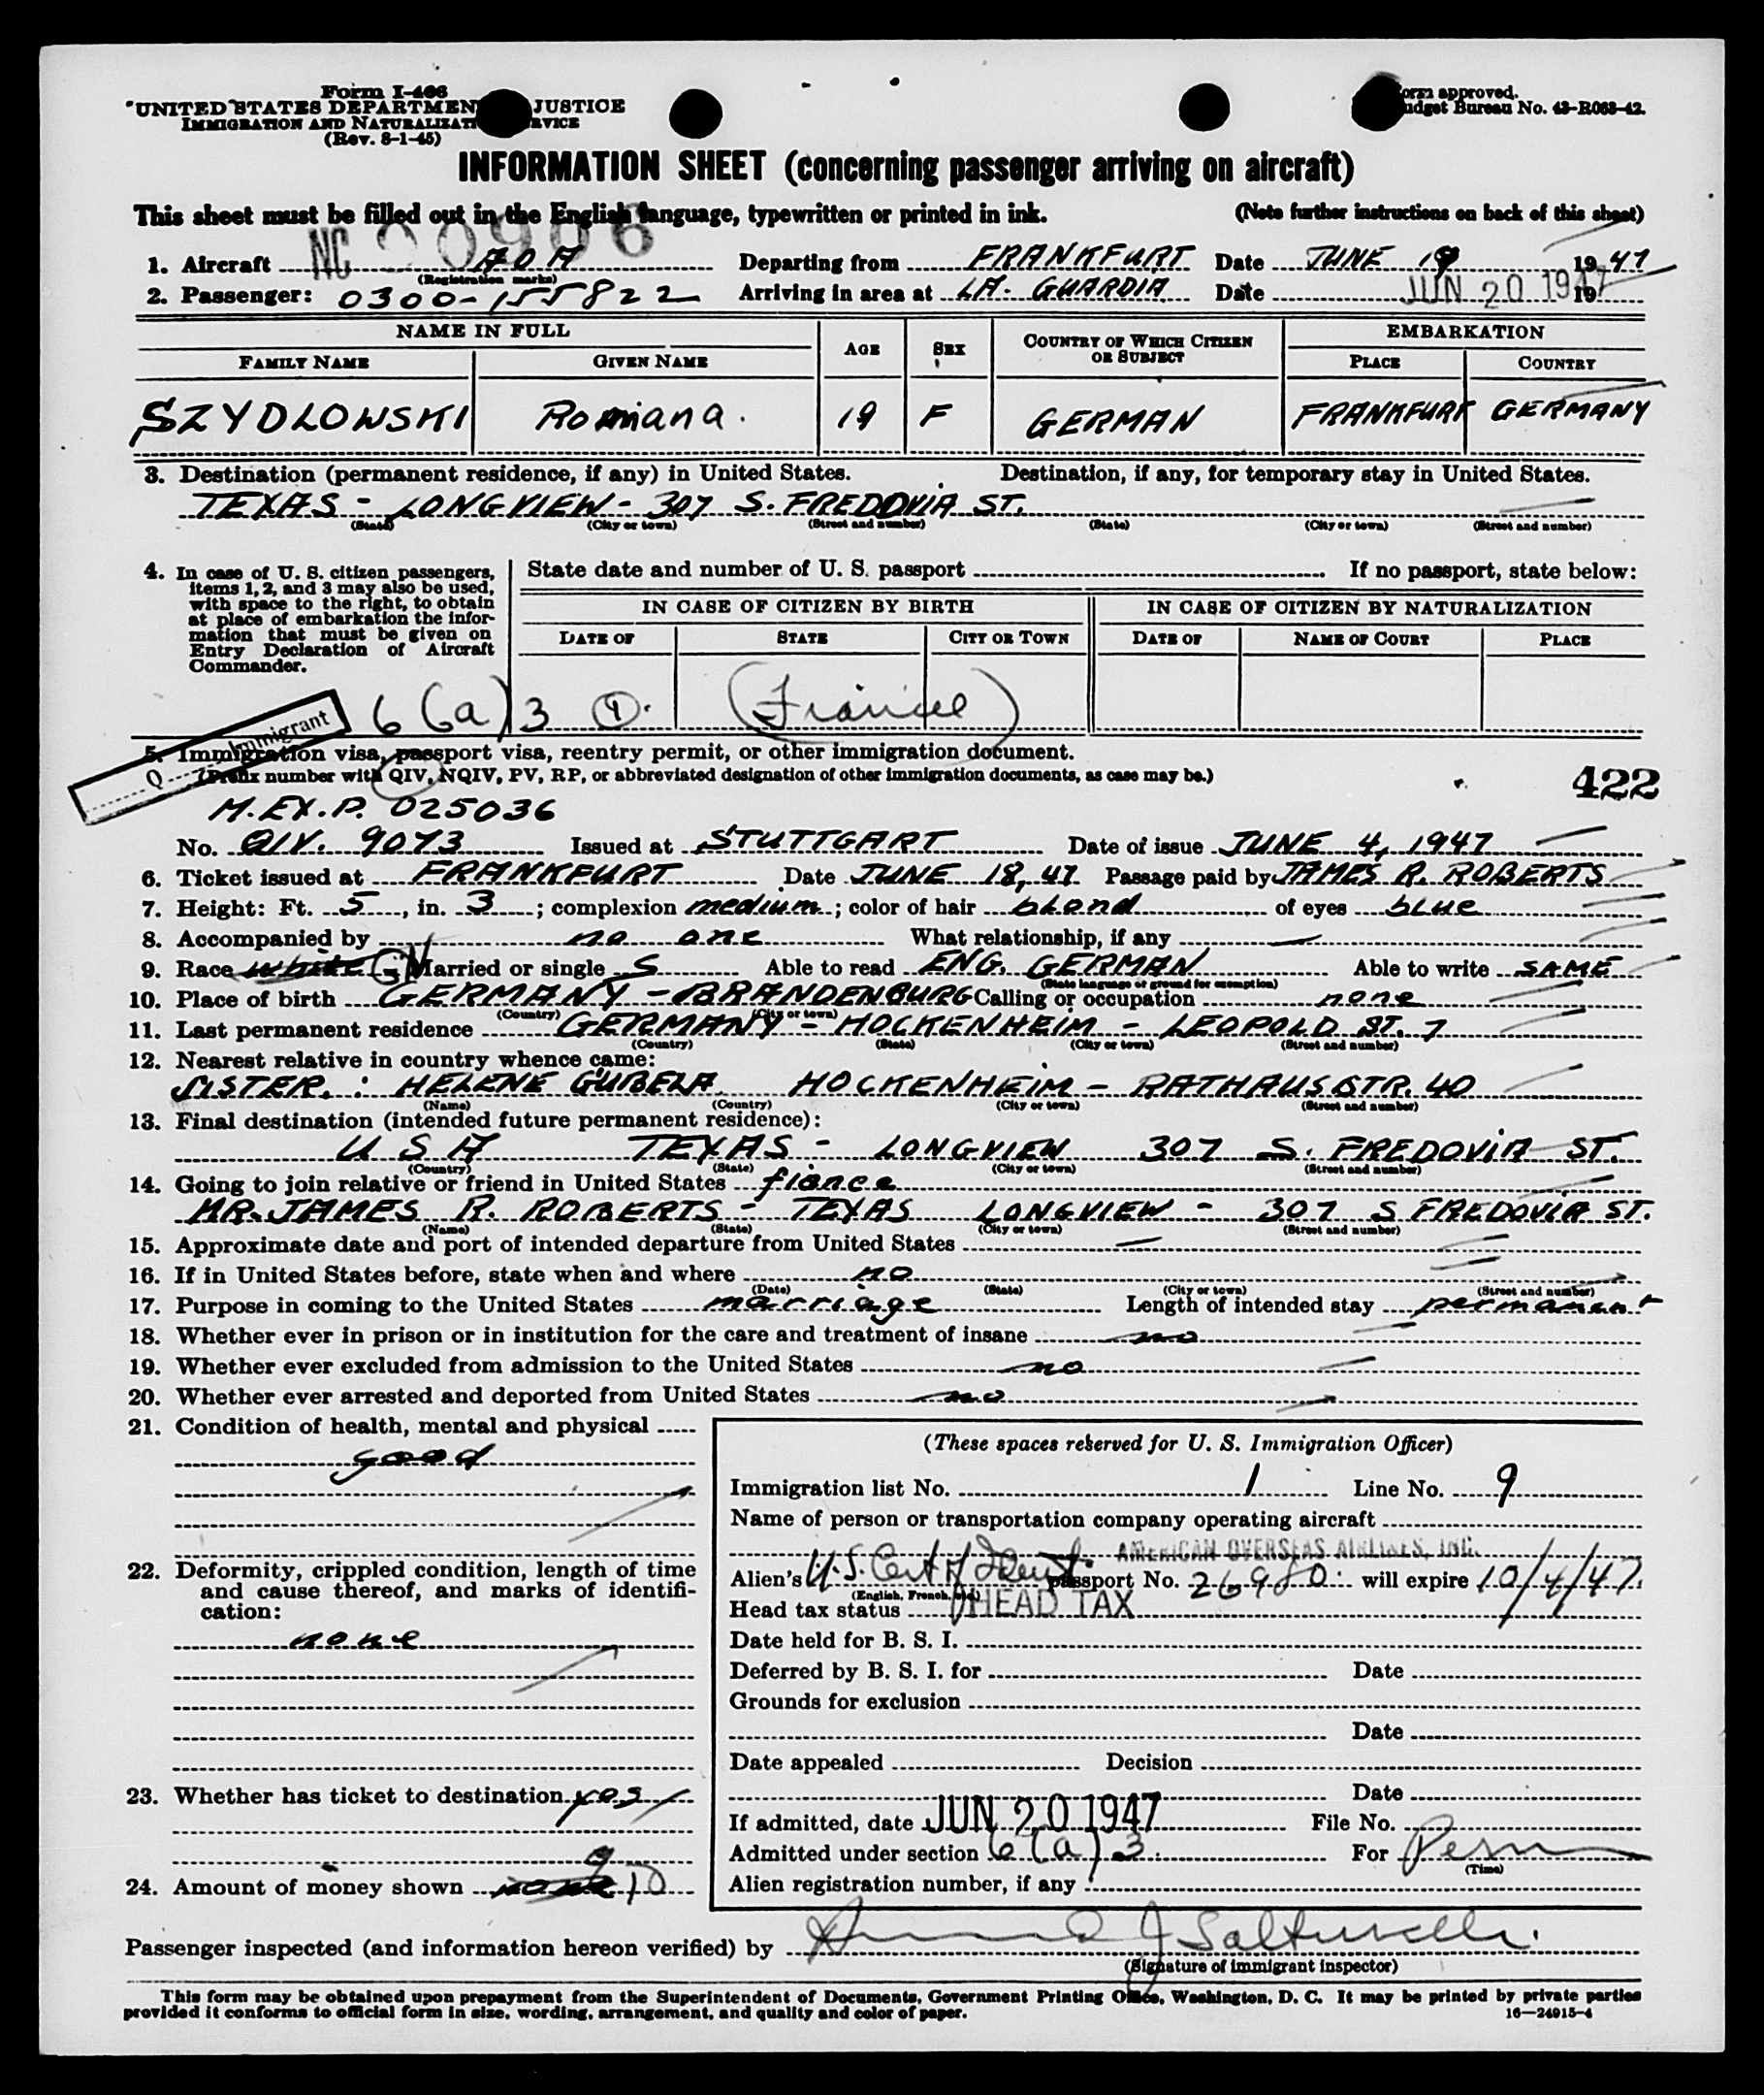 Form I-466
UNITED STATES DEPARTMEN JUSTICE
IMMIGRATION AND NATURALIZATI RVICE
(Rev. 8-1-45)
orm approved.
udget Bureau No. 43-R063-42.
INFORMATION SHEET (concerning passenger arriving on aircraft)
This sheet must be filled out in the English language, typewritten or printed in ink. (Note further instructions on back of this sheet)
NC 90906
1. Aircraft AOA Departing from FRANKFURT Date JUNE 19 1947
(Registration marks)
2. Passenger: 0300-155822 Arriving in area at LA. GUARDIA Date JUN 20 1947 19
NAME IN FULL AGE SEX COUNTRY OF WHICH CITIZEN OR SUBJECT EMBARKATION
FAMILY NAME GIVEN NAME PLACE COUNTRY
SZYDLOWSKI Romana. 19 F GERMAN FRANKFURT GERMANY
3. Destination (permanent residence, if any) in United States. Destination, if any, for temporary stay in United States.
TEXAS - LONGVIEW - 307 S. FREDOVIA ST.
(State) (City or town) (Street and number) (State) (City or town) (Street and number)
4. In case of U. S. citizen passengers, items 1, 2, and 3 may also be used, with space to the right, to obtain at place of embarkation the information that must be given on Entry Declaration of Aircraft Commander.
State date and number of U. S. passport If no passport, state below:
IN CASE OF CITIZEN BY BIRTH IN CASE OF CITIZEN BY NATURALIZATION
DATE OF STATE CITY OR TOWN DATE OF NAME OF COURT PLACE
6(a)3 (Fiancee)
Q Immigrant
5. Immigration visa, passport visa, reentry permit, or other immigration document.
(Prefix number with QIV, NQIV, PV, RP, or abbreviated designation of other immigration documents, as case may be.)
422
M.EX.P. 025036
No. QIV. 9073 Issued at STUTTGART Date of issue JUNE 4, 1947
6. Ticket issued at FRANKFURT Date JUNE 18, 47 Passage paid by JAMES R. ROBERTS
7. Height: Ft. 5, in. 3; complexion medium; color of hair blond of eyes blue
8. Accompanied by no one What relationship, if any —
9. Race white Married or single S Able to read ENG. GERMAN Able to write SAME
(State language or ground for exemption)
10. Place of birth GERMANY - BRANDENBURG Calling or occupation none
(Country) (City or town)
11. Last permanent residence GERMANY - HOCKENHEIM - LEOPOLD ST. 7
(Country) (State) (City or town) (Street and number)
12. Nearest relative in country whence came:
SISTER. : HELENE GÜBELA HOCKENHEIM - RATHAUSSTR. 40
(Name) (Country) (City or town) (Street and number)
13. Final destination (intended future permanent residence):
USA TEXAS - LONGVIEW 307 S. FREDOVIA ST.
(Country) (State) (City or town) (Street and number)
14. Going to join relative or friend in United States fiance
MR. JAMES R. ROBERTS - TEXAS LONGVIEW - 307 S FREDOVIA ST.
(Name) (State) (City or town) (Street and number)
15. Approximate date and port of intended departure from United States —
16. If in United States before, state when and where no
(Date) (State) (City or town) (Street and number)
17. Purpose in coming to the United States marriage Length of intended stay permanent
18. Whether ever in prison or in institution for the care and treatment of insane no
19. Whether ever excluded from admission to the United States no
20. Whether ever arrested and deported from United States no
21. Condition of health, mental and physical
good
22. Deformity, crippled condition, length of time and cause thereof, and marks of identification:
none
23. Whether has ticket to destination yes
24. Amount of money shown none 10
(These spaces reserved for U. S. Immigration Officer)
Immigration list No. 1 Line No. 9
Name of person or transportation company operating aircraft
AMERICAN OVERSEAS AIRLINES, INC.
Alien's U.S. Cert of Ident. passport No. 26980 will expire 10/4/47.
(English, French, etc.)
Head tax status HEAD TAX
Date held for B. S. I.
Deferred by B. S. I. for Date
Grounds for exclusion
Date
Date appealed Decision
Date
If admitted, date JUN 20 1947 File No.
Admitted under section 6(a)3. For Perm
(Time)
Alien registration number, if any
Passenger inspected (and information hereon verified) by
(Signature of immigrant inspector)
This form may be obtained upon prepayment from the Superintendent of Documents, Government Printing Office, Washington, D. C. It may be printed by private parties
provided it conforms to official form in size, wording, arrangement, and quality and color of paper. 16—24915-4